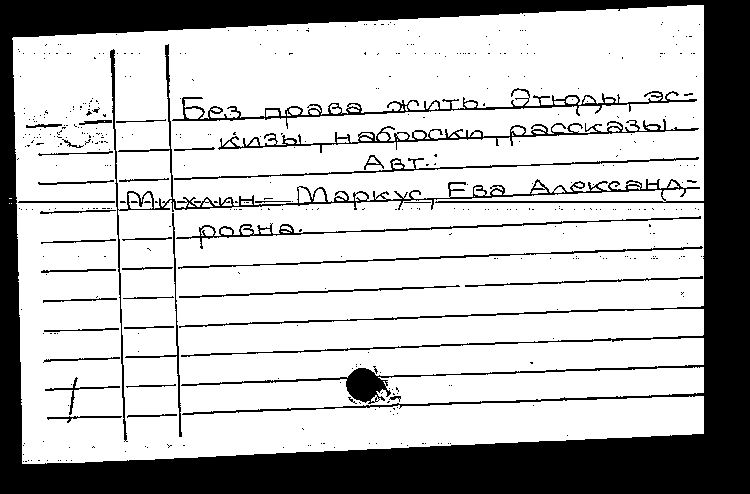 Без права жить. Этюды, эс-
кизы, наброски, рассказы.
Авт.:
Михлин-Маркус, Ева Александ-
ровна.